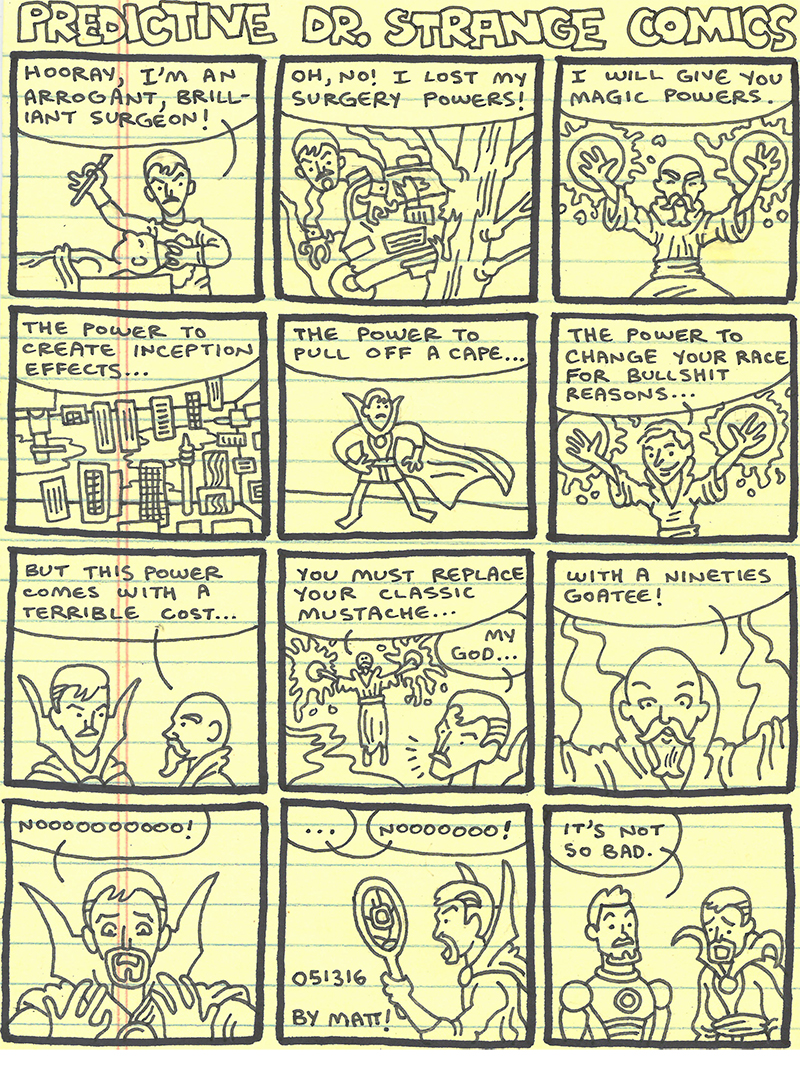 PREDICTIVE DR. STRANGE COMICS
HOORAY, I'M AN
ARROGANT, BRILL-
IANT SURGEON!
OH, NO! I LOST MY
SURGERY POWERS!
I WILL GIVE YOU
MAGIC POWERS.
THE POWER TO
CREATE INCEPTION
EFFECTS...
THE POWER TO
PULL OFF A CAPE...
THE POWER TO
CHANGE YOUR RACE
FOR BULLSHIT
REASONS...
BUT THIS POWER
COMES WITH A
TERRIBLE COST...
YOU MUST REPLACE
YOUR CLASSIC
MUSTACHE...
MY
GOD...
WITH A NINETIES
GOATEE!
NOOOOOOOOOO!
...
NOOOOOOO!
051316
BY MATT!
IT'S NOT
SO BAD.